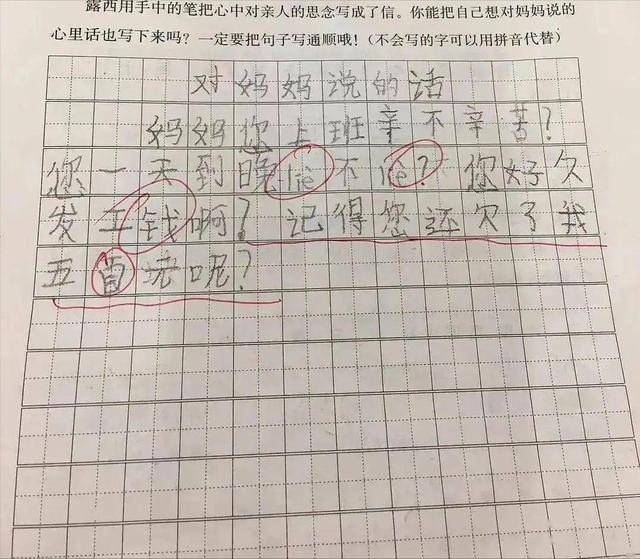 露西用手中的笔把心中对亲人的思念写成了信。你能把自己想对妈妈说的
心里话也写下来吗？一定要把句子写通顺哦！（不会写的字可以用拼音代替）
对妈妈说的话
妈妈您上班辛不辛苦？
您一天到晚liè不liè？您好久
发工钱啊？记得您还欠了我
五百块呢？